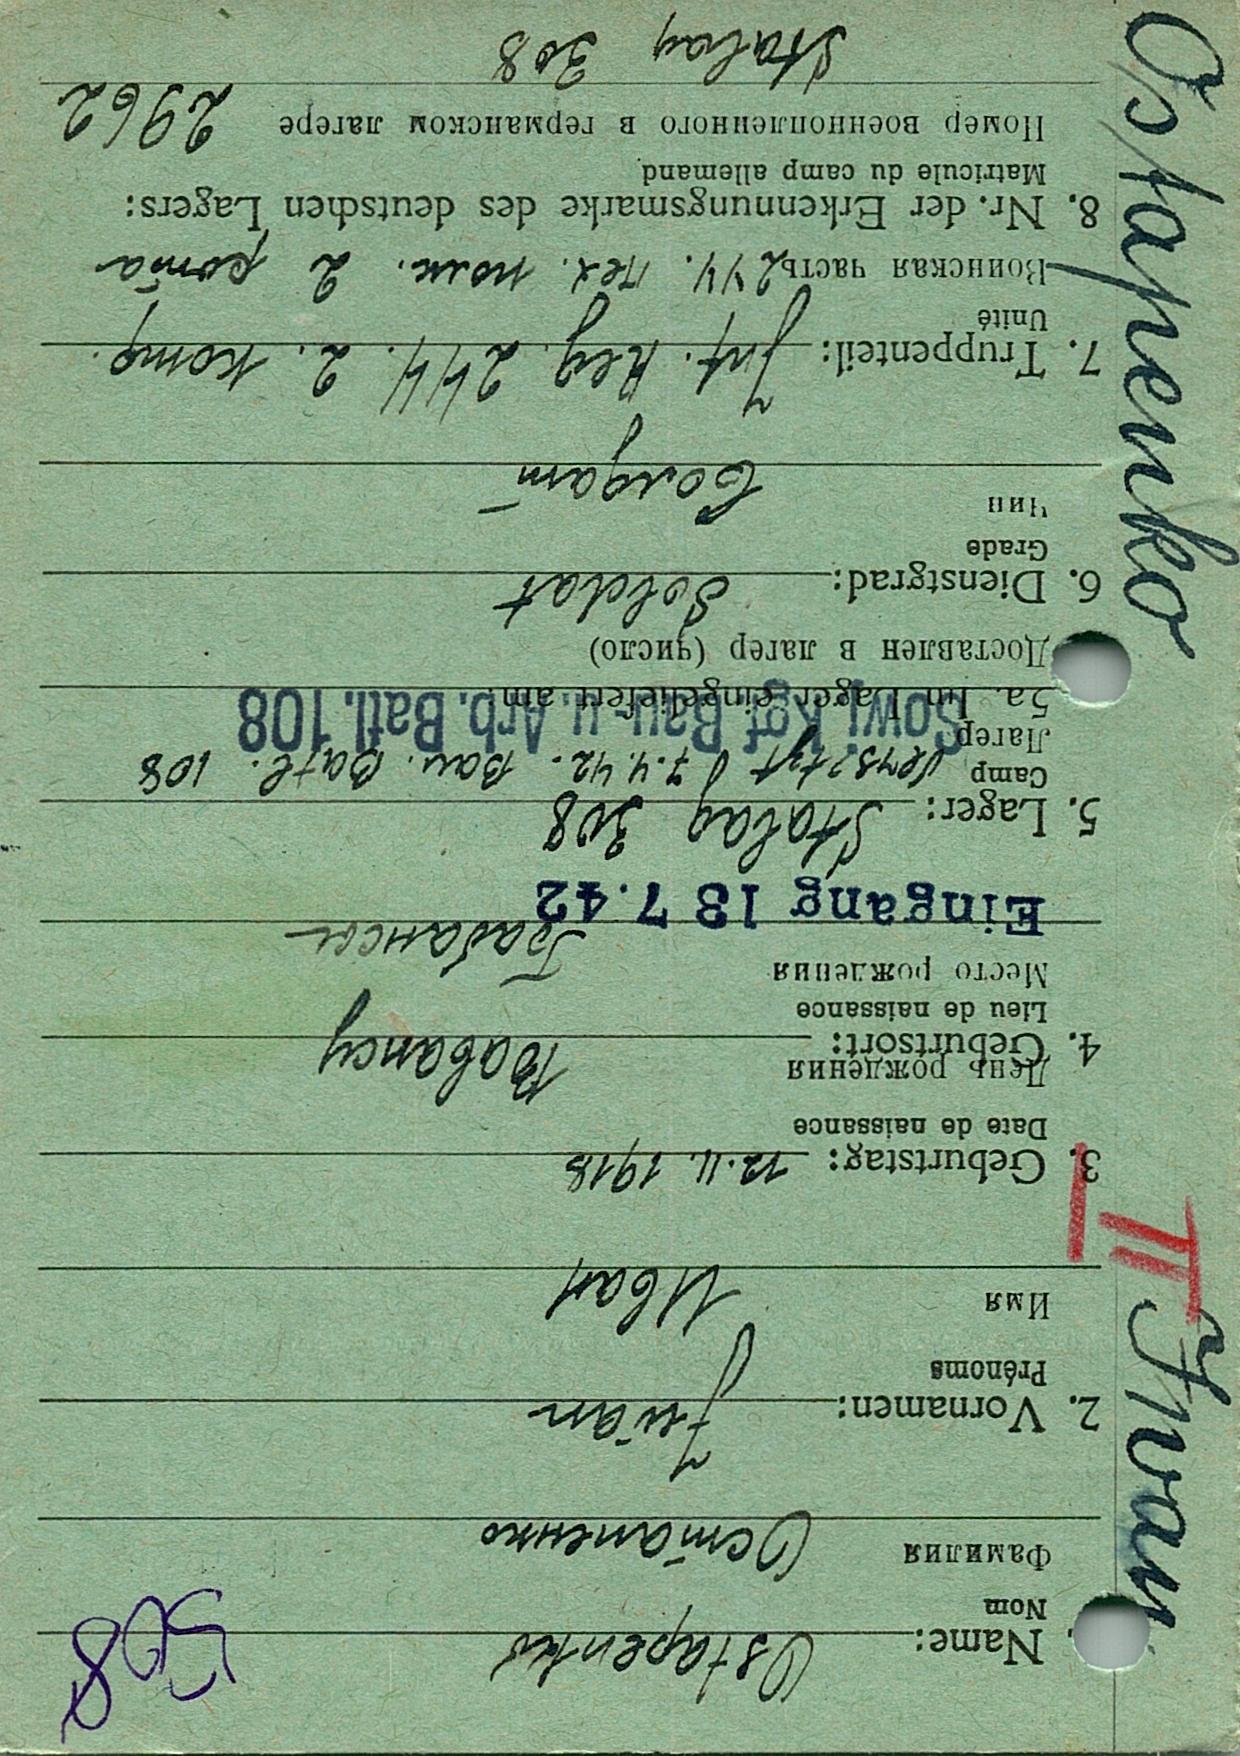 508
1. Name: Ostapenko
Nom
Фамилия Остапенко
2. Vornamen: Iwan
Prénoms
Имя Иван
3. Geburtstag: 12.11.1918
Date de naissance
День рождения
4. Geburtsort:
Lieu de naissance
Место рождения
Eingang 13 7.42
5. Lager: Stalag 308
Camp Vers. 7.4.42. Bau. Batl. 108
Лагер
Sowj. Kgf Bau- u. Arb. Batl. 108
5a. Im Lager eingeliefert am:
Доставлен в лагер (число)
6. Dienstgrad: Soldat
Grade
Чин Солдат
7. Truppenteil: Inf. Reg. 244. 2. Komp.
Unité
Воинская часть 244. пех. полк. 2 рота
8. Nr. der Erkennungsmarke des deutschen Lagers:
Matricule du camp allemand
Номер военнопленного в германском лагере 2962
Stalag 308
Ostapenko Iwan
II